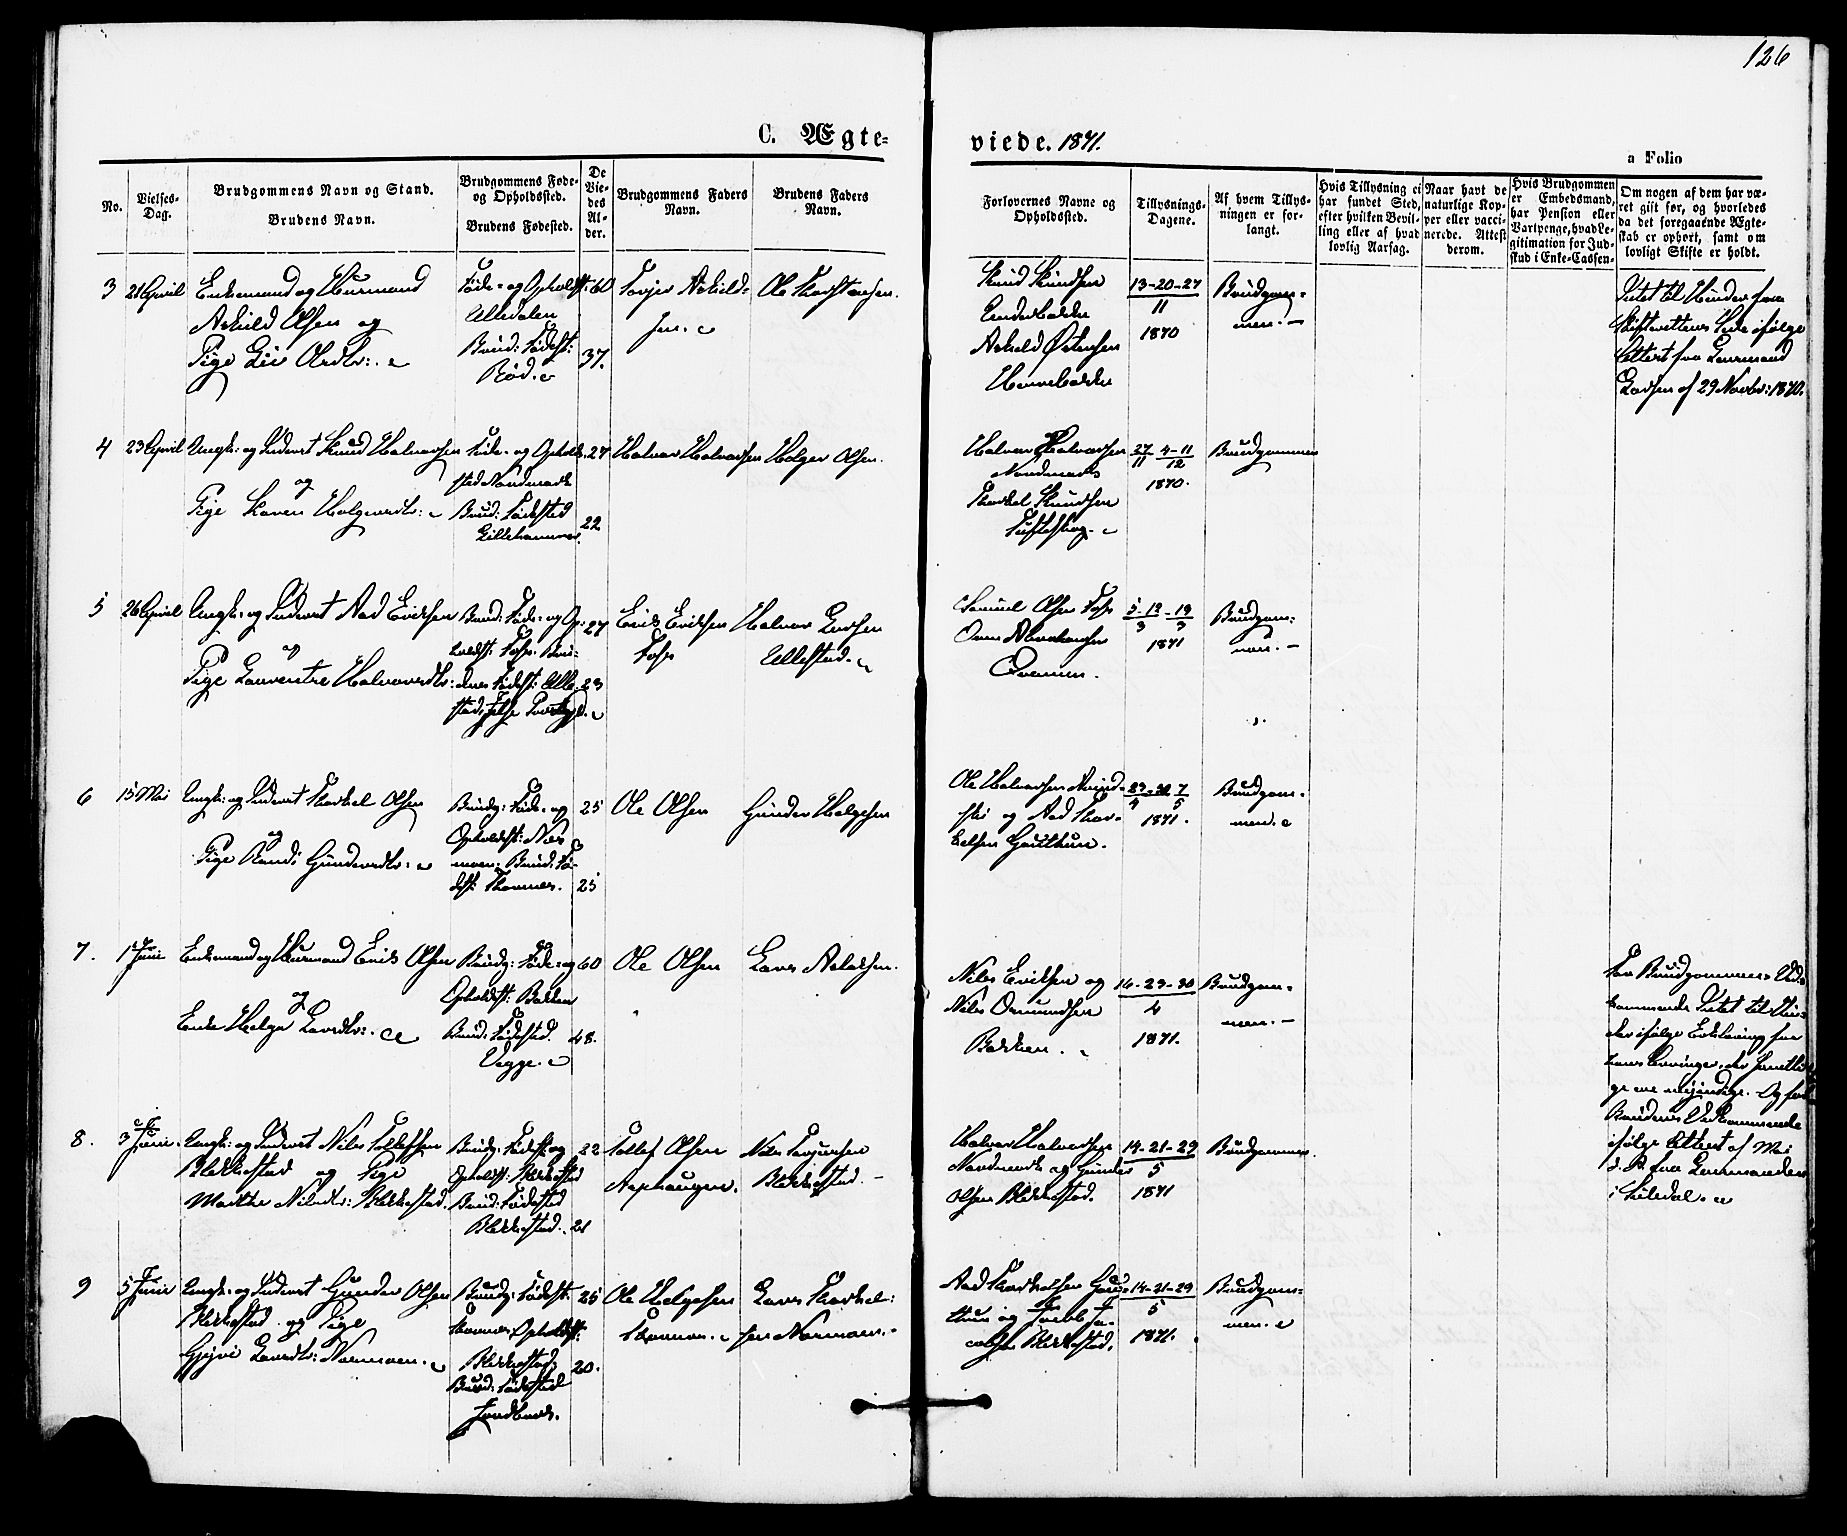 126
C. Ægte=
viede. 1871.
a Folio
No.
Vielses-
Dag.
Brudgommens Navn og Stand.
Brudens Navn.
Brudgommens Føde-
og Opholdssted.
Brudens Fødested.
De
Vie-
des
Al-
der.
Brudgommens Faders
Navn.
Brudens Faders
Navn.
Forlovernes Navne og
Opholdssted.
Tillysnings-
Dagene.
Af hvem Tillys-
ningen er for-
langt.
Hvis Tillysning ei
har fundet Sted,
efter hvilken Bevil-
ling eller af hvad
lovlig Aarsag.
Naar havt de
naturlige Kop-
per eller vacci-
nerede. Attest
derom.
Hvis Brudgommen
er Embedsmand,
har Pension eller
Vartpenge, hvad Le-
gitimation for Ind-
stud i Enke-Cassen.
Om nogen af dem har væ-
ret gift før, og hvorledes
da det foregaaende Ægte-
skab er ophørt, samt om
lovligt Skifte er holdt.
3
21 April
Enkemand og Huusmand
Askild Olsen og
Pige Liv Olsdtr:
Føde- og Opholdst:
Ulledalen
Brud: Fødest:
Rød.
60
37.
Torjer Askild=
sen.
Ole Torstensen.
Knud Knudsen
Askild Østensen
13-20-27
11
1870
Brudgom=
men. -
Intet til Hinder fra
Skifterettens Side ifølge
Attest fra Lensmand
Larsen af 29 Novbr: 1870.
4
23 April
Ungk: og Inderst Knud Halvorsen
og
Pige Karen Holgersdtr:
Føde- og Opholds-
sted Nordmark
Brud: Fødested
Lillehammer
27
22
Halvor Halvorsen
Holger Olsen.
Halvor Halvorsen
Nordmark
Thorkel Knudsen
27 4-11
11 12
1870.
Brudgommen
5
26 April
Ungk: og Inderst Aad Eriksen
og
Pige Laurentze Halvorsdtr:
Brud: Føde- og Op:
holdst: Foss. Bru=
dens Fødest: Ulle-
stad,
27
23
Erik Eriksen
Foss
Halvor Larsen
Ullestad.
Samuel Olsen Foss
5-12-19
3 3
1871
Brudgom=
men. -
6
15 Mai
Ungk: og Inderst Thorkel Olsen
og
Pige Randi Gundersdtr:
Brudg: Føde- og
Opholdst: Nor
moen: Brud: Fø-
dest: Thomnes.
25
25
Ole Olsen
Gunder Helgesen
Ole Halvorsen
og Aad Thor=
kelsen Gauthun.
23-30 7
4 5
1871.
Brudgom=
men.
7.
1 Juni
Enkemand og Huusmand Erik Olsen
og
Enke Helge Larsdtr:
Brudg: Føde- og
Opholdst: Bakken
Brud: Fødested.
Vegge.
60
48.
Ole Olsen
Lars Aslaksen.
Niels Eriksen og
Niels Osmundsen
Bakken.
16-23-30
4
1871.
Brudgom=
men. -
For Brudgommens Ved=
kommende Intet til Hin=
der ifølge Erklæring fra
hans Arvinger, der samtli=
ge ere myndige. Og for
Brudens Vedkommende
ifølge Attest af Mai
d. A. fra Lensmanden
i Suledal.
8.
3 Juni.
Ungk: og Inderst Niels Tollefsen
Blekkestad og Pige
Marthe Nilsdtr: Blekkestad.
Brudg: Fødest: og
Opholdst: Blekkestad
Brud: Fødested
Blekkestad.
22
21
Tollef Olsen
Aashaugen.
Niels Torjusen
Blekkestad. -
Halvor Halvorsen
Nordmark og Gunder
Olsen Blekkestad.
14-21-29
5
1871
Brudgommen.
9
5 Juni
Ungk: og Inderst Gunder Olsen
Blekkestad og Pige
Gjøri Larsdtr: Normoen.
Brudg: Fødest:
Thomnes, Opholdst:
Blekkestad,
Brud: Fødested
25
20.
Ole Helgesen
Thomnes.
Lars Thorkel=
sen Normoen.
Aad Thorkelsen Gau=
thun og Jacob Ja=
cobsen Blekkestad.
14-21-29
5
1871.
Brudgom=
men.